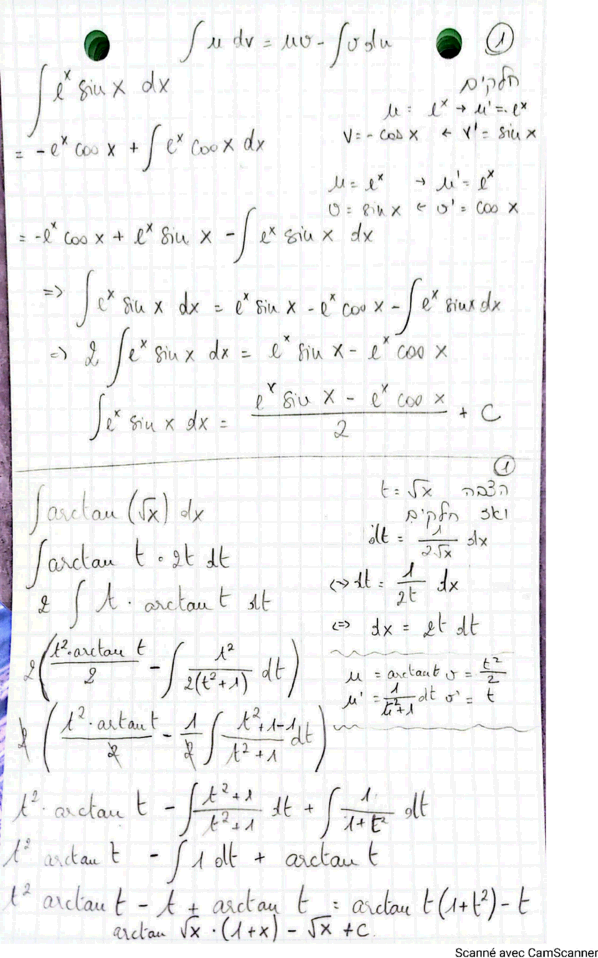 ∫ u dv = uv - ∫ v du ①
∫ e^x sin x dx חלקים
u = e^x → u' = e^x
v = - cos x ← v' = sin x
= -e^x cos x + ∫ e^x cos x dx
u = e^x → u' = e^x
v = sin x ← v' = cos x
= -e^x cos x + e^x sin x - ∫ e^x sin x dx
=> ∫ e^x sin x dx = e^x sin x - e^x cos x - ∫ e^x sin x dx
=> 2 ∫ e^x sin x dx = e^x sin x - e^x cos x
∫ e^x sin x dx = (e^x sin x - e^x cos x)/2 + C
①
∫ arctan (√x) dx t = √x הצבה
ואז חלקים
∫ arctan t · 2t dt dt = 1/(2√x) dx
2 ∫ t · arctan t dt <=> dt = 1/(2t) dx
<=> dx = 2t dt
2 ( (t² · arctan t)/2 - ∫ t²/(2(t²+1)) dt ) u = arctan t v = t²/2
u' = 1/(t²+1) dt v' = t
2 ( (t² · artan t)/2 - 1/2 ∫ (t²+1-1)/(t²+1) dt )
t² · arctan t - ∫ (t²+1)/(t²+1) dt + ∫ 1/(1+t²) dt
t² arctan t - ∫ 1 dt + arctan t
t² arctan t - t + arctan t = arctan t (1+t²) - t
arctan √x · (1+x) - √x + c.
Scanné avec CamScanner